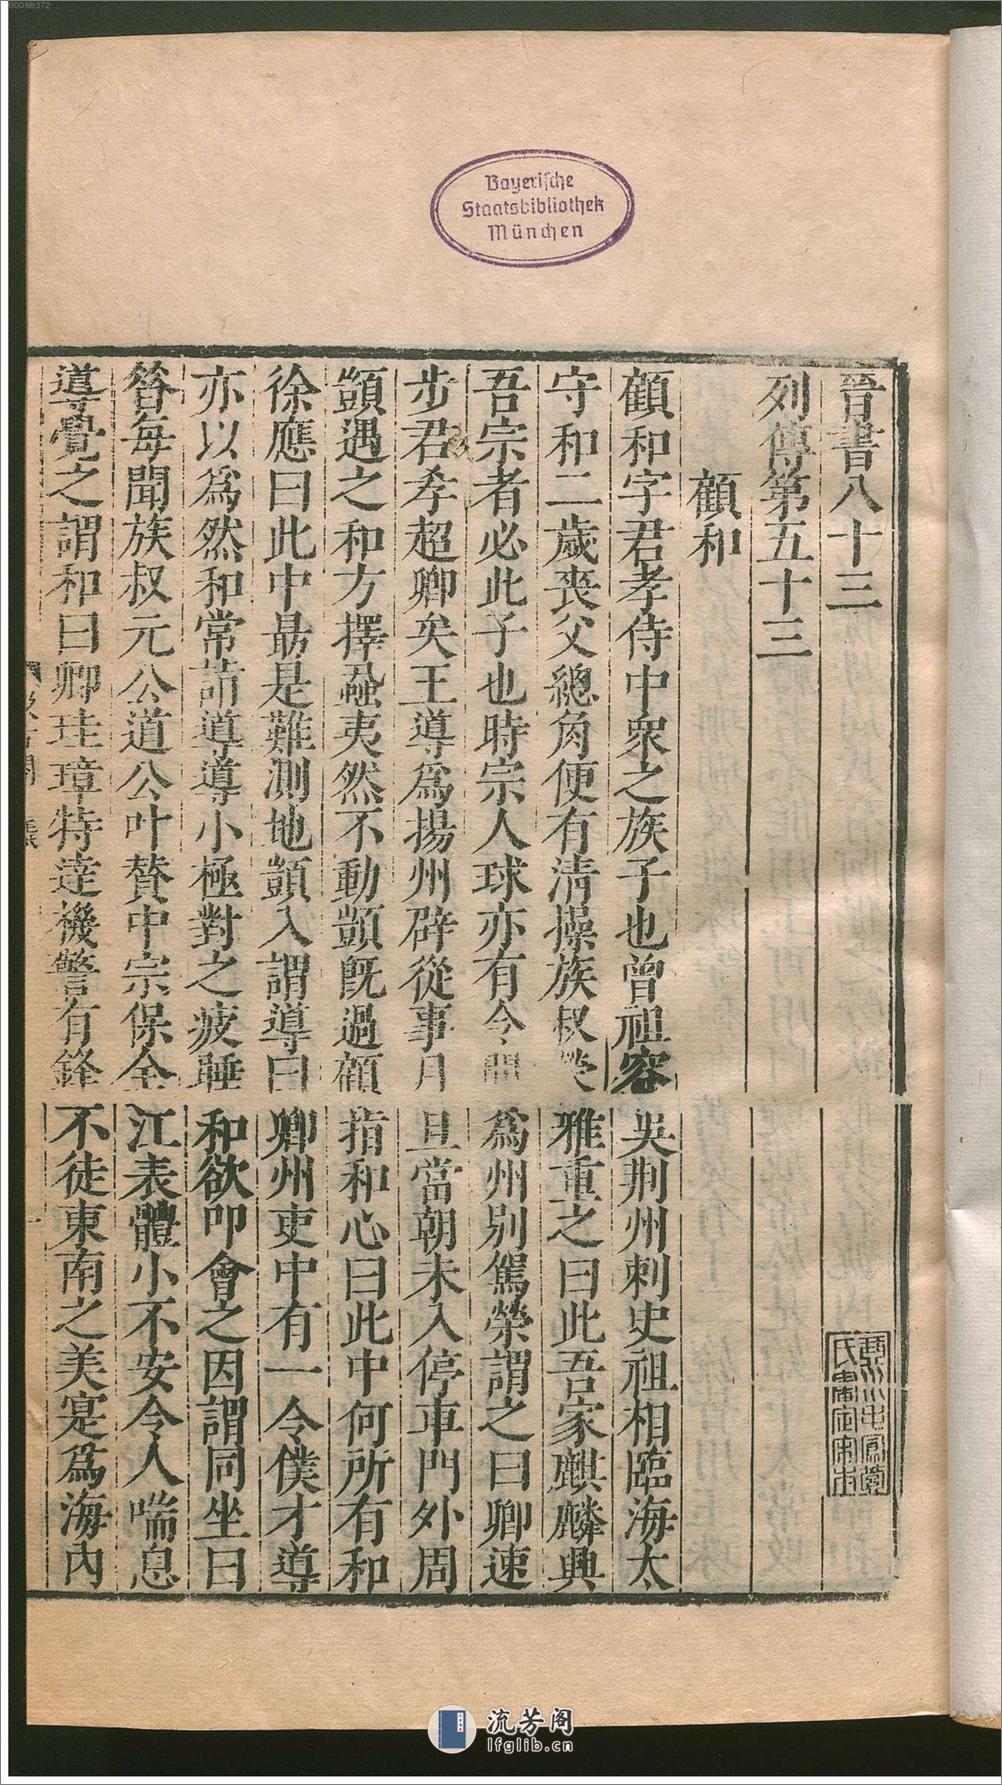 00068372
Bayerische
Staatsbibliothek
München
晉書八十三
列傳第五十三
顧和
顧和字君孝侍中衆之族子也曾祖容吳荆州刺史祖相臨海太
守和二歲喪父總角便有清操族叔榮雅重之曰此吾家麒麟興
吾宗者必此子也時宗人球亦有令聞爲州别駕榮謂之曰卿速
步君孝超卿矣王導爲揚州辟從事月旦當朝未入停車門外周
顗遇之和方擇蝨夷然不動顗旣過顧指和心曰此中何所有和
徐應曰此中最是難測地顗入謂導曰卿州吏中有一令僕才導
亦以爲然和常詣導導小極對之疲睡和欲叩會之因謂同坐曰
昝每聞族叔元公道公叶贊中宗保全江表體小不安令人喘息
導覺之謂和曰卿珪璋特達機警有鋒不徒東南之美寔爲海內
流芳阁
lfglib.cn